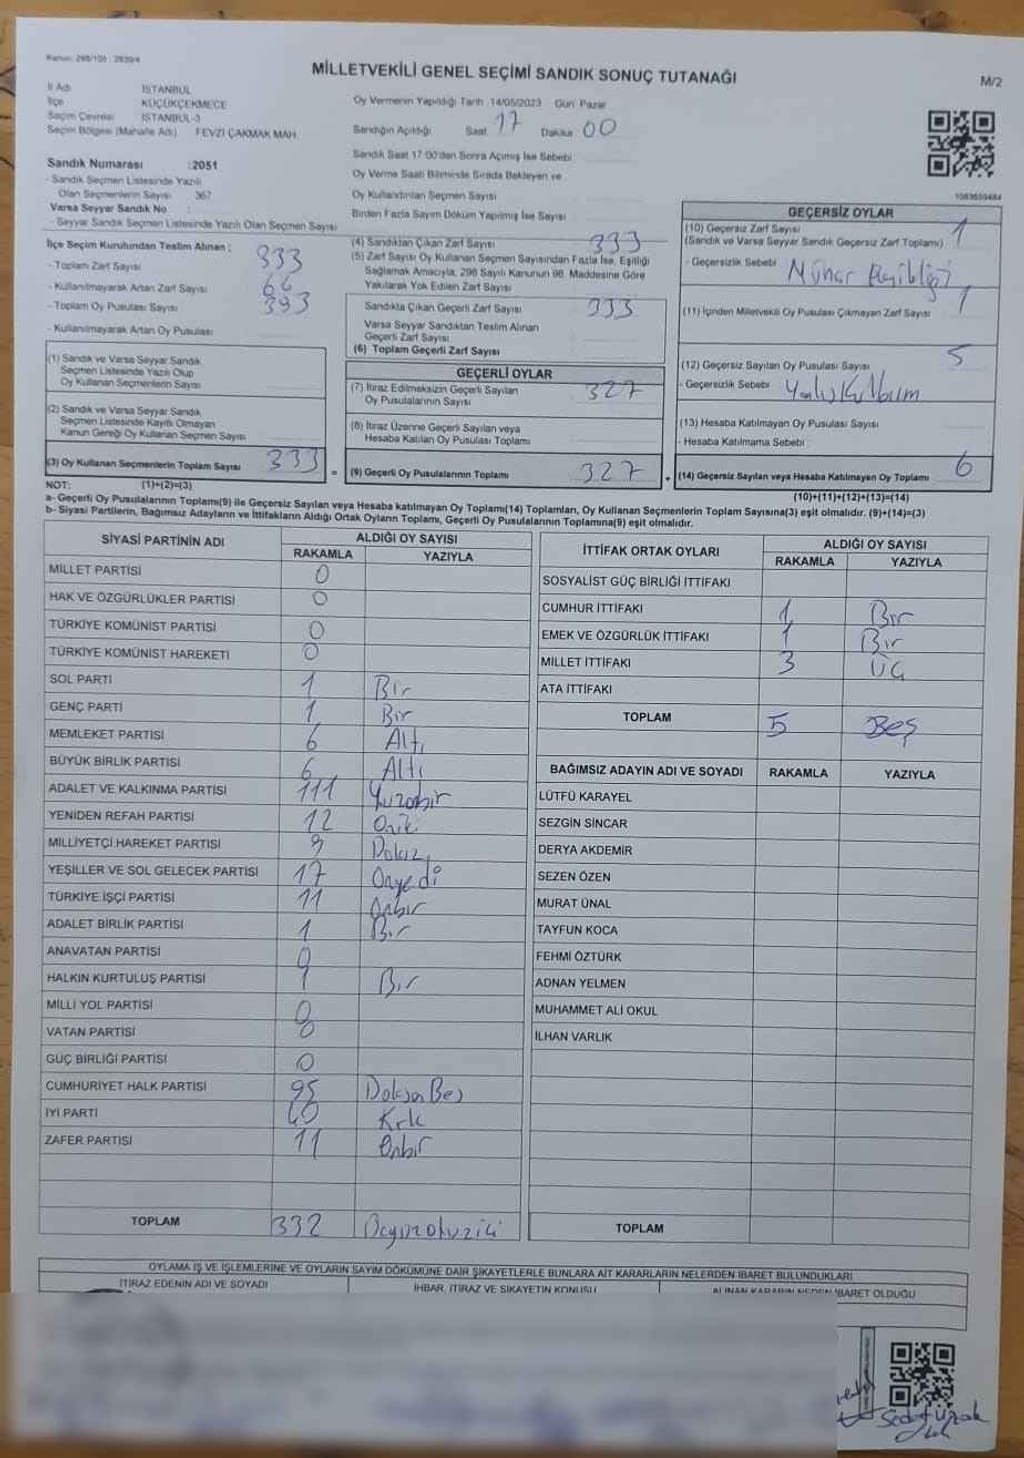 Kanun: 298/105 - 2839/4
MİLLETVEKİLİ GENEL SEÇİMİ SANDIK SONUÇ TUTANAĞI
M/2
İl Adı İSTANBUL
İlçe KÜÇÜKÇEKMECE
Seçim Çevresi İSTANBUL-3
Seçim Bölgesi (Mahalle Adı) FEVZİ ÇAKMAK MAH.
Sandık Numarası :2051
- Sandık Seçmen Listesinde Yazılı
Olan Seçmenlerin Sayısı 367
Varsa Seyyar Sandık No :
- Seyyar Sandık Seçmen Listesinde Yazılı Olan Seçmen Sayısı
Oy Vermenin Yapıldığı Tarih 14/05/2023 Gün Pazar
Sandığın Açıldığı Saat 17 Dakika 00
Sandık Saat 17:00'dan Sonra Açımış İse Sebebi
Oy Verme Saati Bitiminde Sırada Bekleyen ve
Oy Kullandırılan Seçmen Sayısı
Birden Fazla Sayım Döküm Yapılmış İse Sayısı
1083659484
İlçe Seçim Kurulundan Teslim Alınan :
- Toplam Zarf Sayısı
- Kullanılmayarak Artan Zarf Sayısı
- Toplam Oy Pusulası Sayısı
- Kullanılmayarak Artan Oy Pusulası
(1) Sandık ve Varsa Seyyar Sandık
Seçmen Listesinde Yazılı Olup
Oy Kullanan Seçmenlerin Sayısı
(2) Sandık ve Varsa Seyyar Sandık
Seçmen Listesinde Kayıtlı Olmayan
Kanun Gereği Oy Kullanan Seçmen Sayısı
(3) Oy Kullanan Seçmenlerin Toplam Sayısı 333
(4) Sandıktan Çıkan Zarf Sayısı 333
(5) Zarf Sayısı Oy Kullanan Seçmen Sayısından Fazla İse, Eşitliği
Sağlamak Amacıyla, 298 Sayılı Kanunun 98. Maddesine Göre
Yakılarak Yok Edilen Zarf Sayısı
Sandıkta Çıkan Geçerli Zarf Sayısı 333
Varsa Seyyar Sandıktan Teslim Alınan
Geçerli Zarf Sayısı
(6) Toplam Geçerli Zarf Sayısı
GEÇERLİ OYLAR
(7) İtiraz Edilmeksizin Geçerli Sayılan
Oy Pusulalarının Sayısı 327
(8) İtiraz Üzerine Geçerli Sayılan veya
Hesaba Katılan Oy Pusulası Toplamı
= (9) Geçerli Oy Pusulalarının Toplamı 327 +
GEÇERSİZ OYLAR
(10) Geçersiz Zarf Sayısı 1
(Sandık ve Varsa Seyyar Sandık Geçersiz Zarf Toplamı)
- Geçersizlik Sebebi Mühür
(11) İçinden Milletvekili Oy Pusulası Çıkmayan Zarf Sayısı
(12) Geçersiz Sayılan Oy Pusulası Sayısı 5
- Geçersizlik Sebebi
(13) Hesaba Katılmayan Oy Pusulası Sayısı
- Hesaba Katılmama Sebebi
(14) Geçersiz Sayılan veya Hesaba Katılmayan Oy Toplamı 6
NOT: (1)+(2)=(3)
(10)+(11)+(12)+(13)=(14)
a- Geçerli Oy Pusulalarının Toplamı(9) ile Geçersiz Sayılan veya Hesaba katılmayan Oy Toplamı(14) Toplamları, Oy Kullanan Seçmenlerin Toplam Sayısına(3) eşit olmalıdır. (9)+(14)=(3)
b- Siyasi Partilerin, Bağımsız Adayların ve İttifakların Aldığı Ortak Oyların Toplamı, Geçerli Oy Pusulalarının Toplamına(9) eşit olmalıdır.
SİYASİ PARTİNİN ADI ALDIĞI OY SAYISI
RAKAMLA YAZIYLA
MİLLET PARTİSİ 0
HAK VE ÖZGÜRLÜKLER PARTİSİ 0
TÜRKİYE KOMÜNİST PARTİSİ 0
TÜRKİYE KOMÜNİST HAREKETİ 0
SOL PARTİ 1 Bir
GENÇ PARTİ 1 Bir
MEMLEKET PARTİSİ 6 Altı
BÜYÜK BİRLİK PARTİSİ 6 Altı
ADALET VE KALKINMA PARTİSİ 111
YENİDEN REFAH PARTİSİ 12 Oniki
MİLLİYETÇİ HAREKET PARTİSİ 9 Dokuz
YEŞİLLER VE SOL GELECEK PARTİSİ 17 Onyedi
TÜRKİYE İŞÇİ PARTİSİ 11 Onbir
ADALET BİRLİK PARTİSİ 1 Bir
ANAVATAN PARTİSİ 0
HALKIN KURTULUŞ PARTİSİ 1 Bir
MİLLİ YOL PARTİSİ 0
VATAN PARTİSİ 0
GÜÇ BİRLİĞİ PARTİSİ 0
CUMHURİYET HALK PARTİSİ 95 DoksanBeş
İYİ PARTİ 40 Kırk
ZAFER PARTİSİ 11 Onbir
TOPLAM 332
İTTİFAK ORTAK OYLARI ALDIĞI OY SAYISI
RAKAMLA YAZIYLA
SOSYALİST GÜÇ BİRLİĞİ İTTİFAKI
CUMHUR İTTİFAKI 1 Bir
EMEK VE ÖZGÜRLÜK İTTİFAKI 1 Bir
MİLLET İTTİFAKI 3 Üç
ATA İTTİFAKI
TOPLAM 5 Beş
BAĞIMSIZ ADAYIN ADI VE SOYADI RAKAMLA YAZIYLA
LÜTFÜ KARAYEL
SEZGİN SİNCAR
DERYA AKDEMİR
SEZEN ÖZEN
MURAT ÜNAL
TAYFUN KOCA
FEHMİ ÖZTÜRK
ADNAN YELMEN
MUHAMMET ALİ OKUL
İLHAN VARLIK
TOPLAM
OYLAMA İŞ VE İŞLEMLERİNE VE OYLARIN SAYIM DÖKÜMÜNE DAİR ŞİKAYETLERLE BUNLARA AİT KARARLARIN NELERDEN İBARET BULUNDUKLARI
İTİRAZ EDENİN ADI VE SOYADI İHBAR, İTİRAZ VE ŞİKAYETİN KONUSU ALINAN KARARIN NEDEN İBARET OLDUĞU